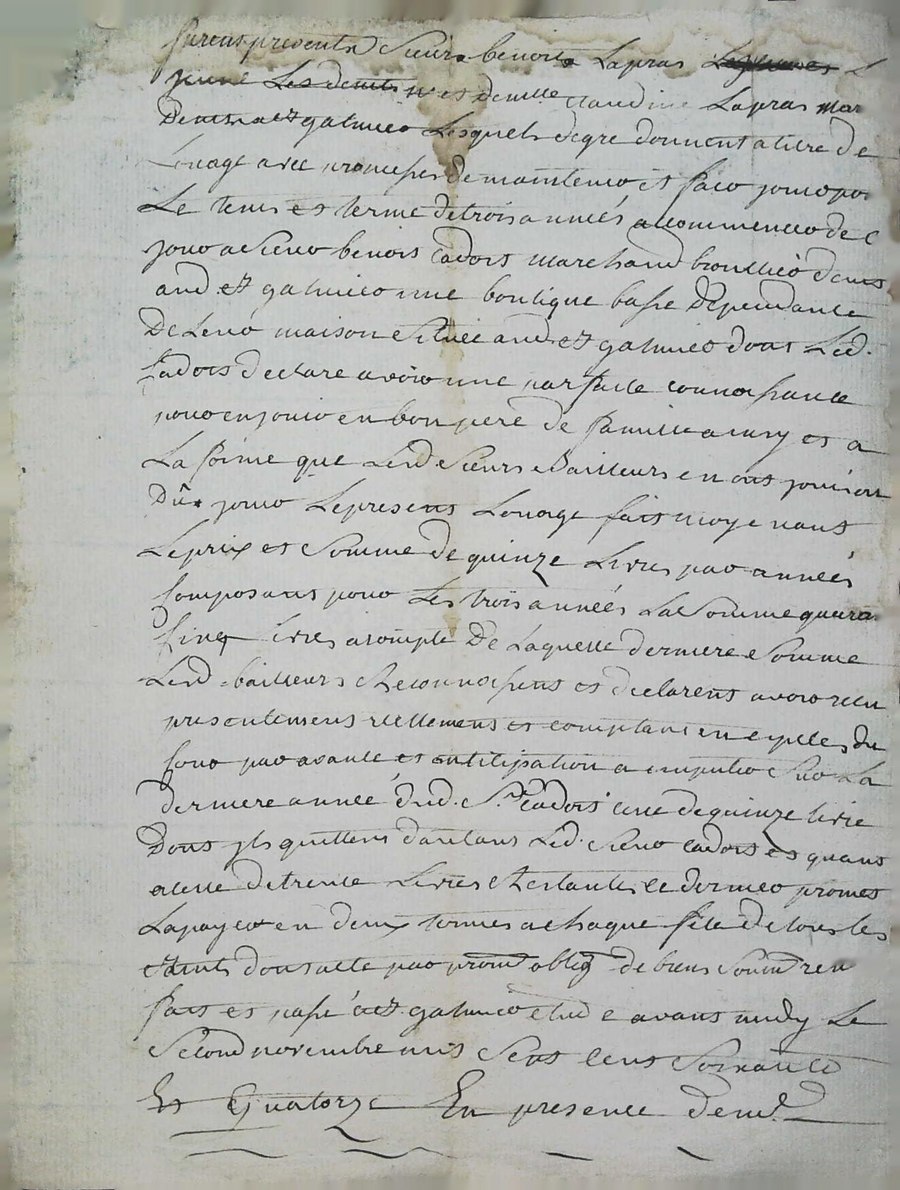 furent presents Sieur benoit Lapras
jeune et demlle claudine Lapras mar
Demt a st galmier Lesquels degre donnent a titre de
Louage avec promesses de maintenir et faire jouir pour
Le tems et terme de trois années a commencer de ce
jour a Sieur benoit Cadors marchand demt
aud. st galmier une boutique basse Dependante
De Leur maison Située aud. st galmier dont Led.
Cadors declare avoir une parfaite connoissance
pour en jouir en bon pere de famille ainsy et a
La forme que Lesd. Sieurs Bailleurs en ont joui ou
Dû jouir Le present Louage fait moyenant
Le prix et Somme de quinze Livres par années
Composant pour Les trois années La Somme quaran
Cinq livres a compte De Laquelle derniere Somme
Lesd. bailleurs Reconnoissent et declarent avoir recu
presentement reellement et comptant en especes du
Cour par avance et antitipation a imputer Sur La
derniere année dud. Sr. Cadors celle de quinze livre
Dont jls quittent d'autant Led. Sieur Cadors et quant
a celle de trente Livres Restantes ce dernier promet
La payer en deux termes a chaque fête de tous les
Saints dont acte par prom obligon de biens Soumon ren
fait et passé a st. galmier etude avant midy Le
Second novembre mil Sept Cent Soixante
Et Quatorze En presence de mr